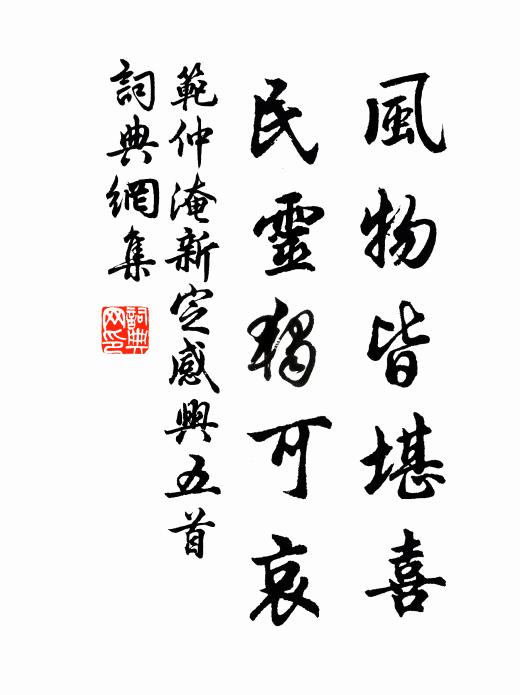 風物皆堪喜
民靈獨可哀
範仲淹新定感興五首
詞典網集
詞典网印